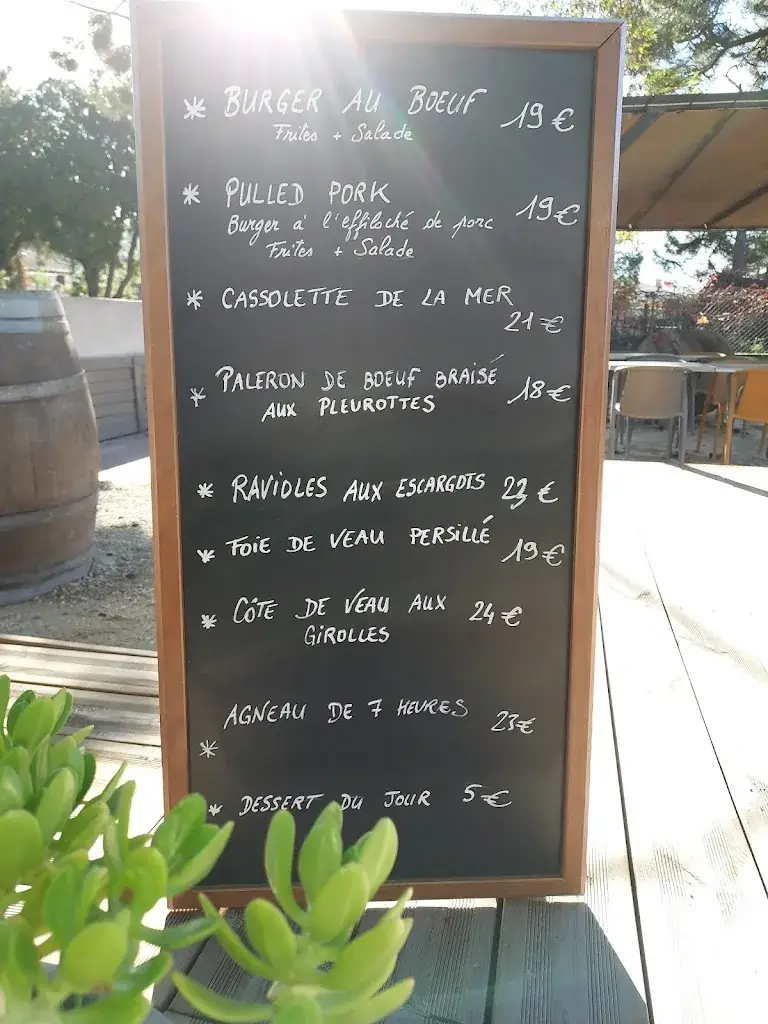 * BURGER AU BOEUF 19€
Frites + Salade
* PULLED PORK 19€
Burger à l'effiloché de porc
Frites + Salade
* CASSOLETTE DE LA MER
21€
* PALERON DE BOEUF BRAISÉ 18€
AUX PLEUROTTES
* RAVIOLES AUX ESCARGOTS 23€
* FOIE DE VEAU PERSILLÉ 19€
* CÔTE DE VEAU AUX 24€
GIROLLES
AGNEAU DE 7 HEURES 23€
*
* DESSERT DU JOUR 5€